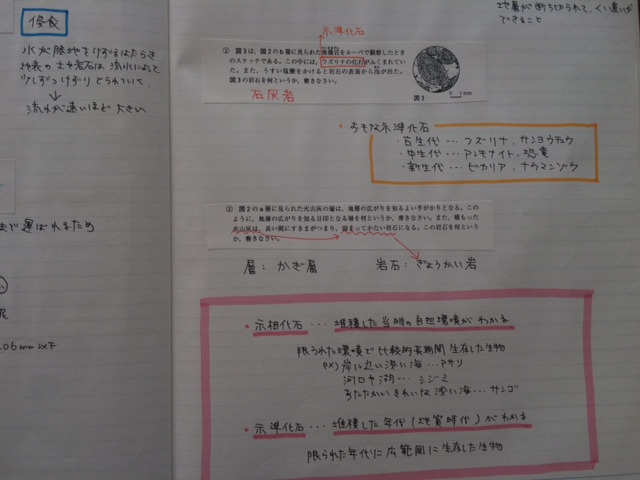 侵食
水が陸地をけずるはたらき
地表の土や岩石は流水によって
少しずつけずりとられていく。
↓
流れが速いほど大きい
まで運ばれるため
.06mm以下
地層が断ち切られて、くい違いが
できること
示準化石
① 図3は、図2のb層に見られた堆積岩をルーペで観察したとき
のスケッチである。この中には、フズリナの化石がふくまれてい
た。また、うすい塩酸をかけると岩石の表面から泡が出た。
図3の岩石を何というか、書きなさい。
石灰岩
図3
0 1mm
・おもな示準化石
・古生代…フズリナ,サンヨウチュウ
・中生代…アンモナイト,恐竜
・新生代…ビカリア,ナウマンゾウ
② 図2のa層に見られた火山灰の層は、地層の広がりを知るよい手がかりとなる。この
ように、地層の広がりを知る目印となる層を何というか、書きなさい。また、積もった
火山灰は、長い間にすきまがつまり、固まってかたい岩石になる。この岩石を何という
か、書きなさい。
層: かぎ層
岩石: ぎょうかい岩
・示相化石…堆積した当時の自然環境がわかる
限られた環境で比較的長期間生存した生物
ex) 岸に近い浅い海…アサリ
河口や湖…シジミ
あたたかいきれいな浅い海…サンゴ
・示準化石…堆積した年代(地質時代)がわかる
限られた年代に広範囲に生存した生物